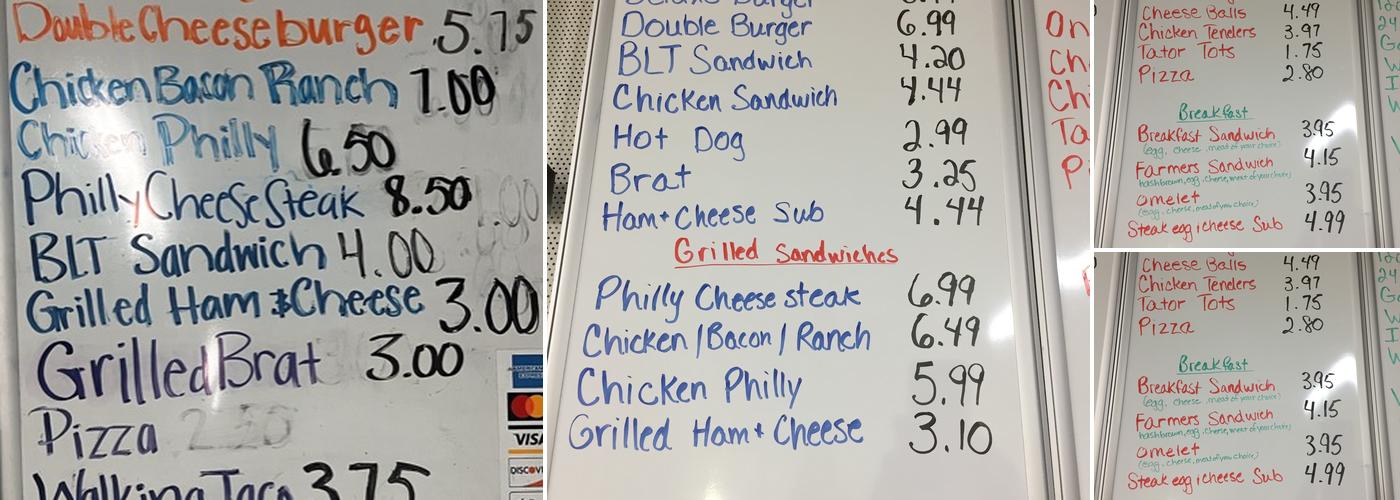 Double Cheeseburger 5.75
Chicken Bacon Ranch 7.00
Chicken Philly 6.50
Philly Cheese Steak 8.50
BLT Sandwich 4.00
Grilled Ham & Cheese 3.00
Grilled Brat 3.00
Pizza 2.50
Walking Taco 3.75
AMERICAN EXPRESS
VISA
DISCOV
Deluxe Burger
Double Burger 6.99
BLT Sandwich 4.20
Chicken Sandwich 4.44
Hot Dog 2.99
Brat 3.25
Ham + Cheese Sub 4.44
Grilled Sandwiches
Philly Cheese steak 6.99
Chicken / Bacon / Ranch 6.49
Chicken Philly 5.99
Grilled Ham + Cheese 3.10
On
Ch
Chi
Ta
Pi
Cheese Balls 4.49
Chicken Tenders 3.97
Tator Tots 1.75
Pizza 2.80
Breakfast
Breakfast Sandwich 3.95
(egg, cheese, meat of your choice)
Farmers Sandwich 4.15
hashbrown, egg, cheese, meat of your choice)
Omelet 3.95
(egg, cheese, meat of your choice)
Steak egg & cheese Sub 4.99
Cheese Balls 4.49
Chicken Tenders 3.97
Tator Tots 1.75
Pizza 2.80
Breakfast
Breakfast Sandwich 3.95
(egg, cheese, meat of your choice)
Farmers Sandwich 4.15
hashbrown, egg, cheese, meat of your choice)
Omelet 3.95
(egg, cheese, meat of your choice)
Steak egg & cheese Sub 4.99